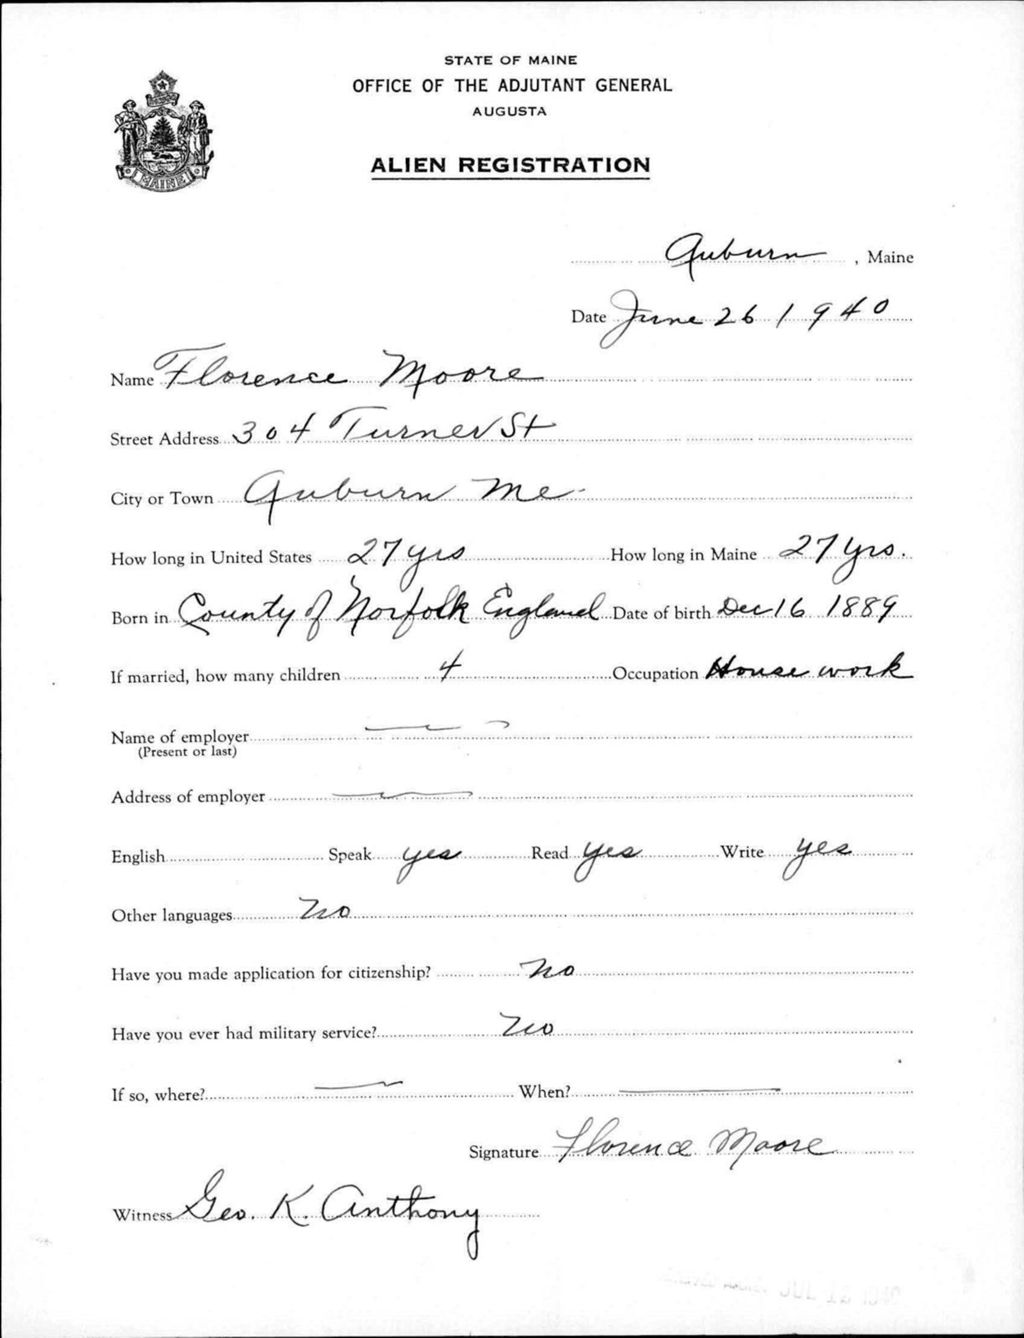 STATE OF MAINE
OFFICE OF THE ADJUTANT GENERAL
AUGUSTA
ALIEN REGISTRATION
MAINE
Auburn, Maine
Date June 26 1940
Name Florence Moore
Street Address 304 Turner St
City or Town Auburn Me.
How long in United States 27 yrs How long in Maine 27 yrs.
Born in County of Norfolk England Date of birth Dec 16 1889
If married, how many children 4 Occupation House work
Name of employer
(Present or last)
Address of employer
English Speak yes Read yes Write yes
Other languages No
Have you made application for citizenship? No
Have you ever had military service? No
If so, where? When?
Signature Florence Moore
Witness Geo. K. Anthony
JUL 1940